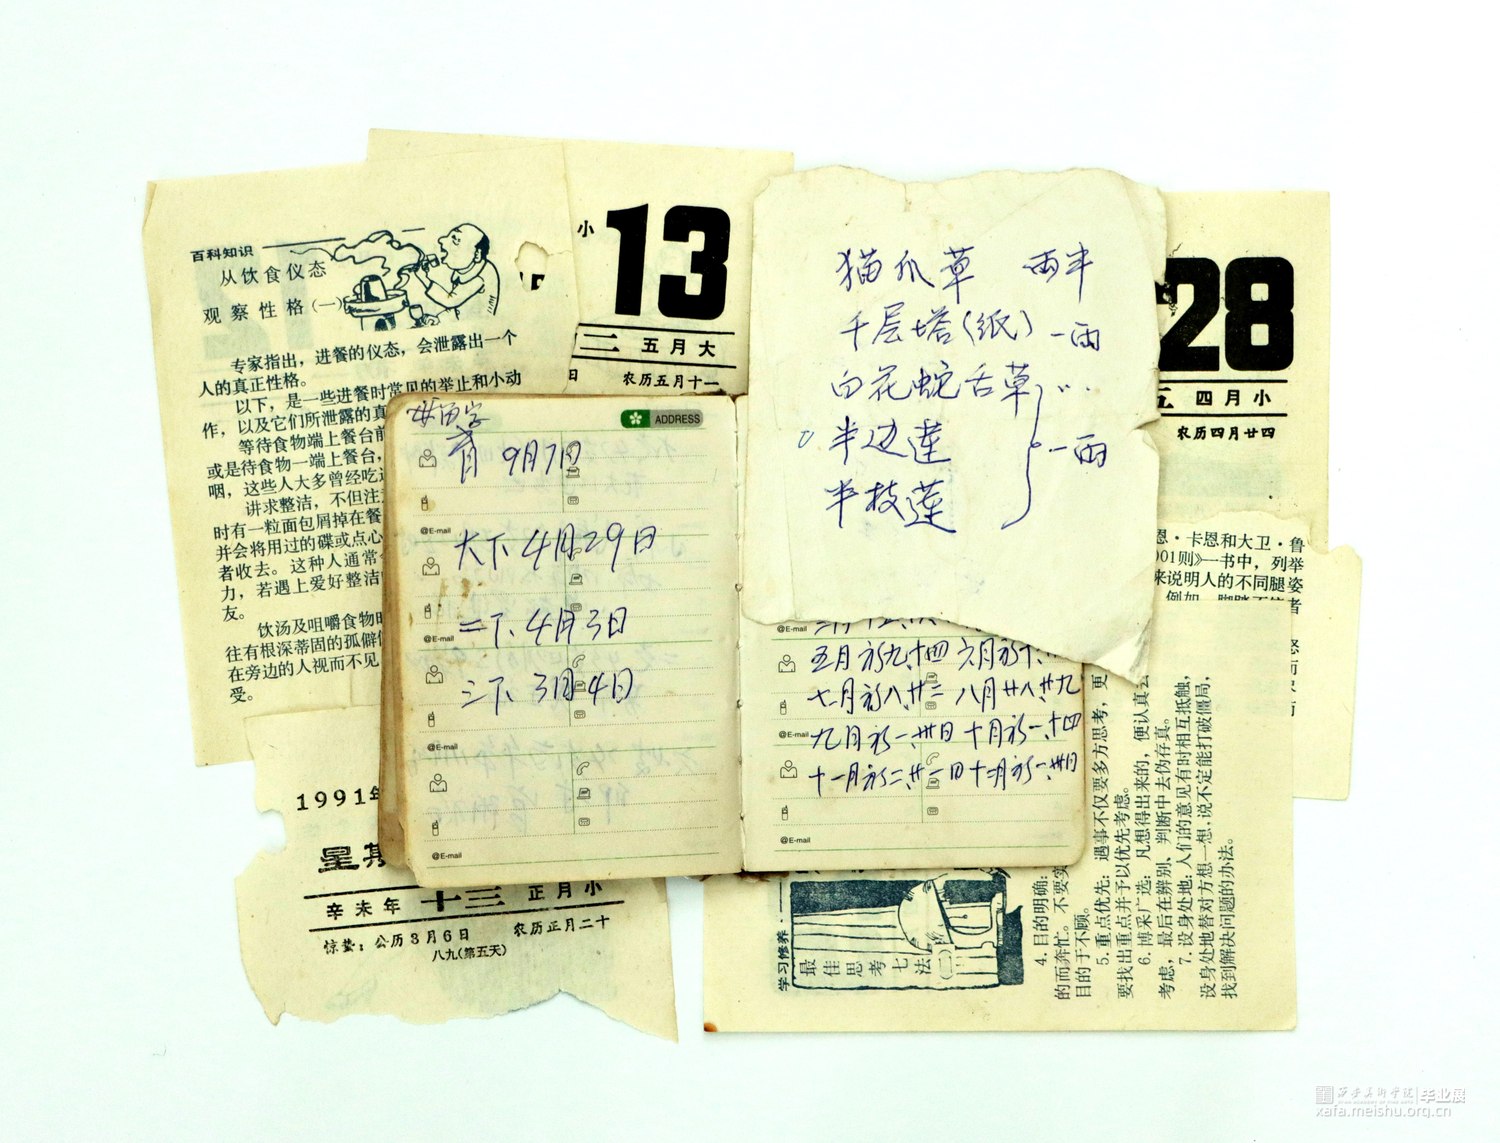 百科知识
从饮食仪态
观察性格(一)
专家指出，进餐的仪态，会泄露出一个
人的真正性格。
以下，是一些进餐时常见的举止和小动
作，以及它们所泄露的真
等待食物端上餐台前
或是待食物一端上餐台，
咽，这些人大多曾经吃过
讲求整洁，不但注意
时有一粒面包屑掉在餐
并会将用过的碟或点心
者收去。这种人通常
力，若遇上爱好整洁
友。
饮汤及咀嚼食物时
往有根深蒂固的孤僻
在旁边的人视而不见
受。
小 13
二 五月大
日 农历五月十一
猫爪草 两半
千层塔(纸) 一两
白花蛇舌草 〃
半边莲
一两
半枝莲
28
五 四月小
农历四月廿四
恩·卡恩和大卫·鲁
001则》一书中，列举
来说明人的不同腿姿
ADDRESS
9月7日
@E-mail
大下 4月29日
@E-mail
二下 4月3日
@E-mail
三下 3月4日
@E-mail
@E-mail
五月初九、十四 六月初十、
七月初八、廿三 八月廿八、廿九
@E-mail
九月初一、卅日 十月初一、十四
十一月初二、廿一日 十二月初一、卅日
@E-mail
1991年
星期
辛未年 十三 正月小
惊蛰：公历3月6日 农历正月二十
八九(第五天)
学习修养·
最佳思考七法(二)
4.目的明确：
的而奔忙。不要实
目的于不顾。
5.重点优先：遇事不仅要多方思考，更
要找出重点并予以优先考虑。
6.博采广选：凡想得出来的，便认真去
考虑，最后在辨别、判断中去伪存真。
7.设身处地：人们的意见有时相互抵触，
设身处地替对方想一想，说不定能打破僵局，
找到解决问题的办法。
西安美术学院 毕业展
xafa.meishu.org.cn